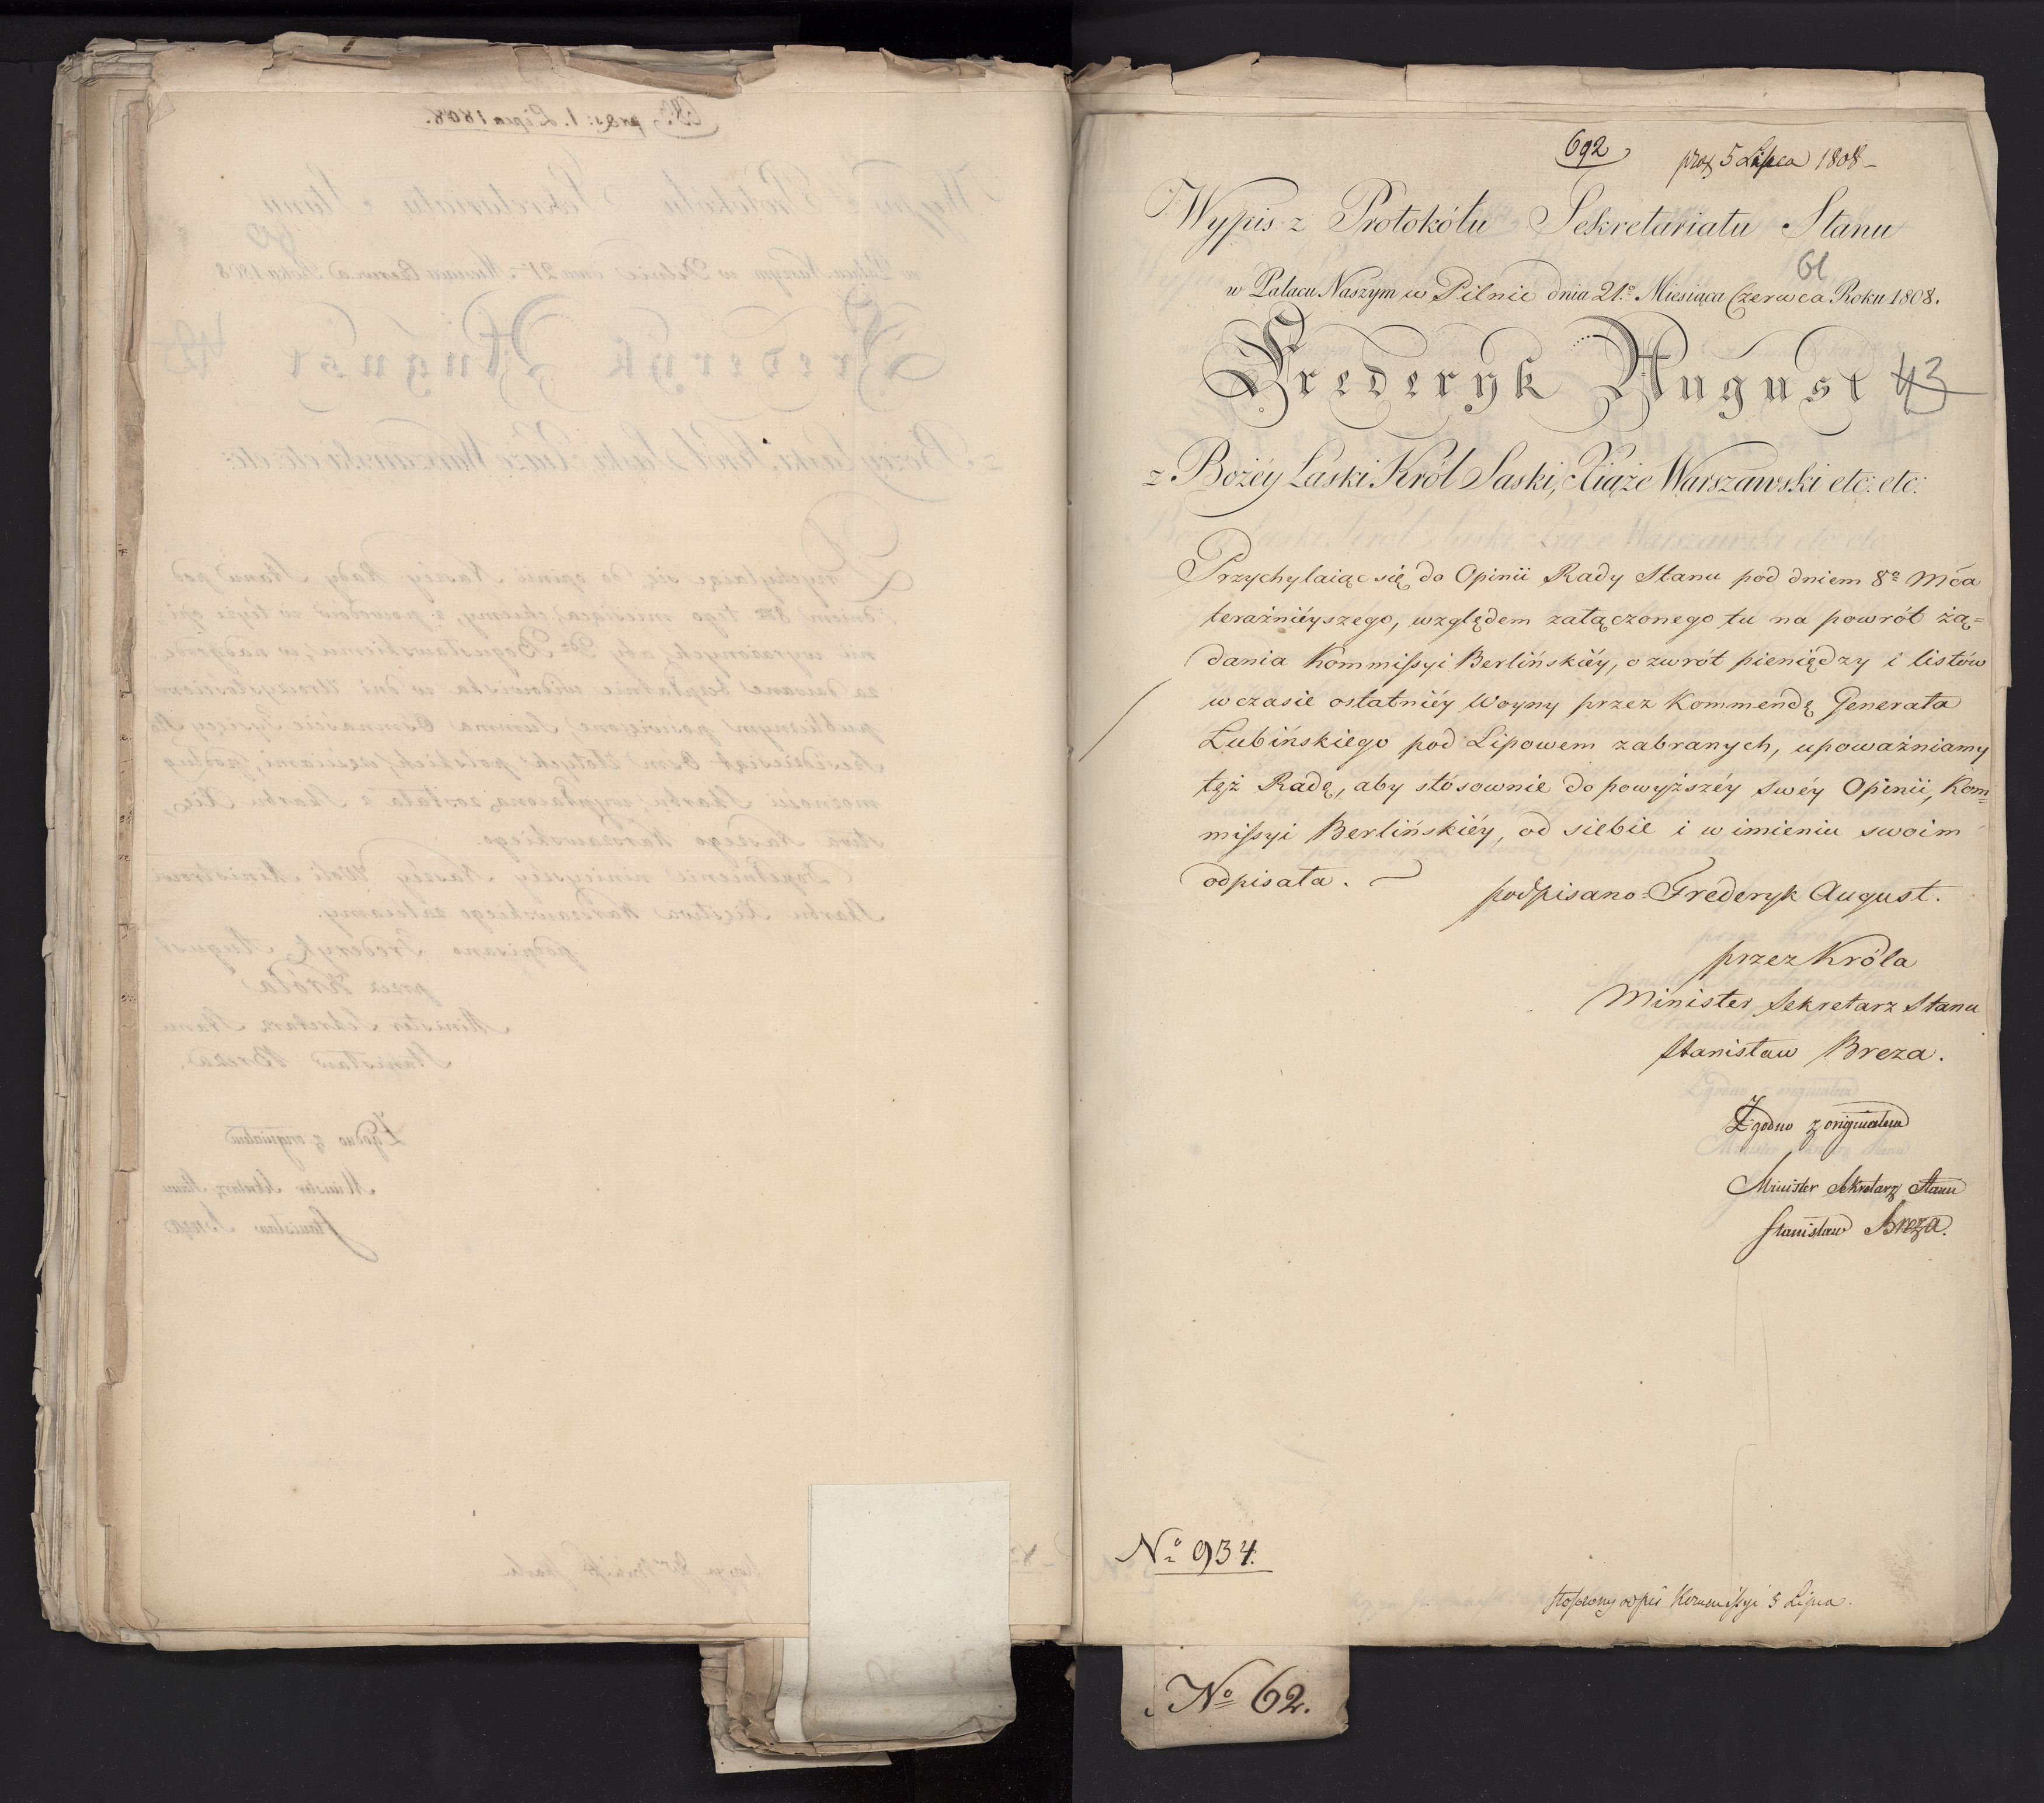 692 praes 5 Lipca 1808
Wypis z Protokółu Sekretariatu Stanu
61
w Pałacu Naszym w Pilnie dnia 21.º Miesiąca Czerwca Roku 1808.
Frederyk August
43
z Bożéy Łaski Król Saski, Xiąże Warszawski etc: etc:
Przychylaiąc się do Opinii Rady Stanu pod dniem 8º Mca
teraźniéyszego, względem załączonego tu na powrót żą=
dania Kommissyi Berlińskiéy, o zwrót pieniędzy i listów
w czasie ostatniéy Woyny przez Kommendę Generała
Lubińskiego pod Lipowem zabranych, upoważniamy
też Radę, aby stósownie do powyższéy swéy Opinii, Kom=
missyi Berlińskiéy, od siebie i w imieniu swoim
odpisała.
podpisano Frederyk August.
przez Króla
Minister Sekretarz Stanu
Stanisław Breza.
Zgodno z originałem
Minister Sekretarz Stanu
Stanisław Breza.
Nº 934.
stosowny odpis Kommissyi 5 Lipca.
Nº 62.